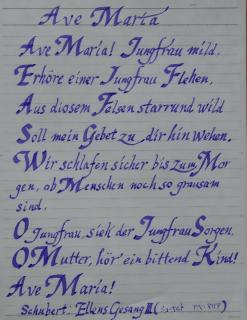 Ave Maria
Ave Maria! Jungfrau mild,
Erhöre einer Jungfrau Flehen,
Aus diosem Felsen starr und wild
Soll mein Gebet zu dir hin wehen.
Wir schlafen sicher bis zum Mor
gen, ob Menschen noch so grausam
sind.
O Jungfrau, sieh der Jungfrau Sorgen,
O Mutter, hör' ein bittend Kind!
Ave Maria!
Schubert: Ellens Gesang III (